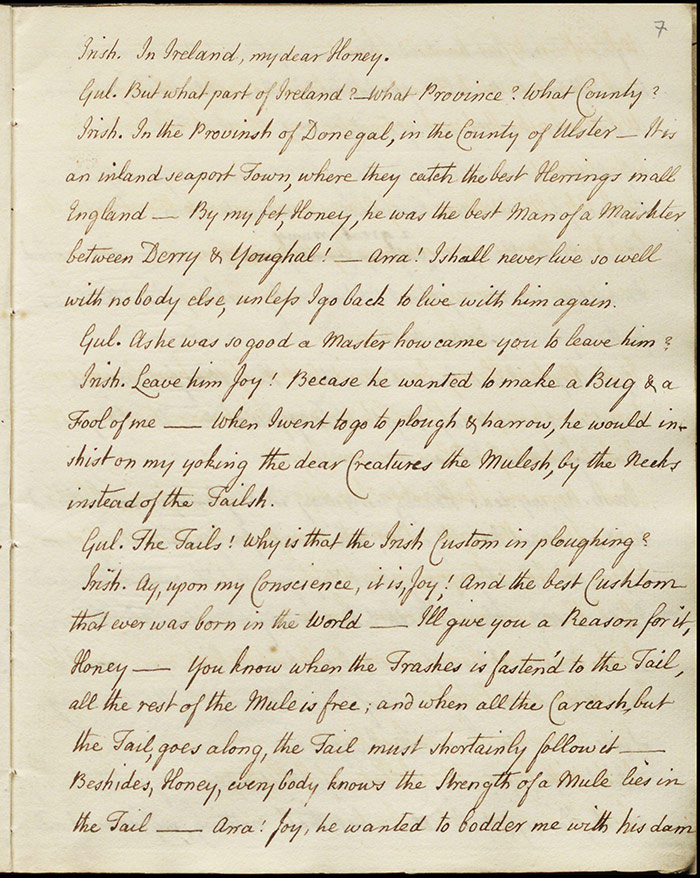 7
Irish. In Ireland, my dear Honey.
Gul. But what part of Ireland? — What Province? What County?
Irish. In the Provinsh of Donegal, in the County of Ulster — It is
an inland seaport Town, where they catch the best Herrings in all
England — By my fet, Honey, he was the best Man of a Maishter
between Derry & Youghal! — Arra! I shall never live so well
with nobody else, unless I go back to live with him again.
Gul. As he was so good a Master how came you to leave him?
Irish. Leave him Joy! Becase he wanted to make a Bug & a
Fool of me — When I went to go to plough & harrow, he would in-
shist on my yoking the dear Creatures the Mulesh, by the Necks
instead of the Tailsh.
Gul. The Tails! Why is that the Irish Custom in ploughing?
Irish. Ay, upon my Conscience, it is, Joy! And the best Cushtom
that ever was born in the World — I'll give you a Reason for it,
Honey — You know when the Trashes is fasten'd to the Tail,
all the rest of the Mule is free; and when all the Carcash, but
the Tail, goes along, the Tail must shortainly follow it —
Beshides, Honey, every body knows the Strength of a Mule lies in
the Tail — Arra! Joy, he wanted to bodder me with his dam